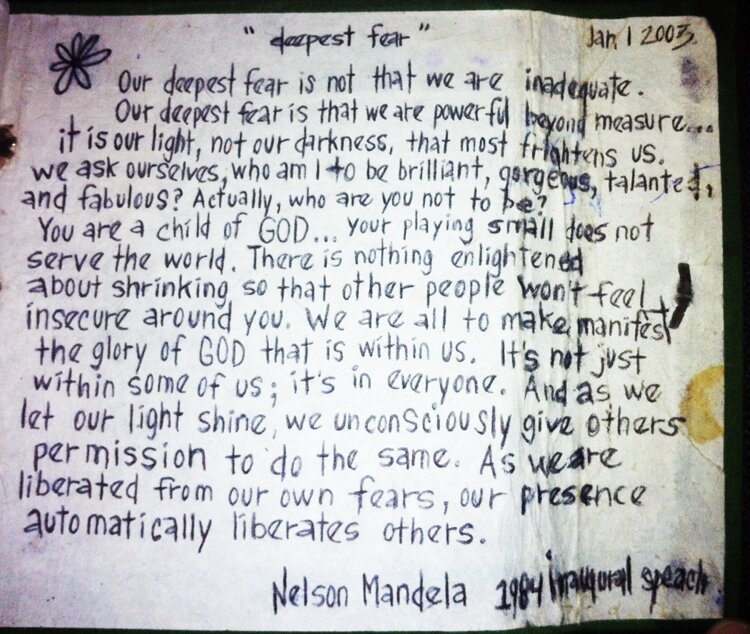 " deepest fear "
Jan. 1 2003.
Our deepest fear is not that we are inadequate.
Our deepest fear is that we are powerful beyond measure...
it is our light, not our darkness, that most frightens us.
we ask ourselves, who am I to be brilliant, gorgeous, talanted,
and fabulous? Actually, who are you not to be?
You are a child of GOD... your playing small does not
serve the world. There is nothing enlightened
about shrinking so that other people won't feel
insecure around you. We are all to make manifest
the glory of GOD that is within us. It's not just
within some of us; it's in everyone. And as we
let our light shine, we unconsciously give others
permission to do the same. As we are
liberated from our own fears, our presence
automatically liberates others.
Nelson Mandela 1984 inaugural speach